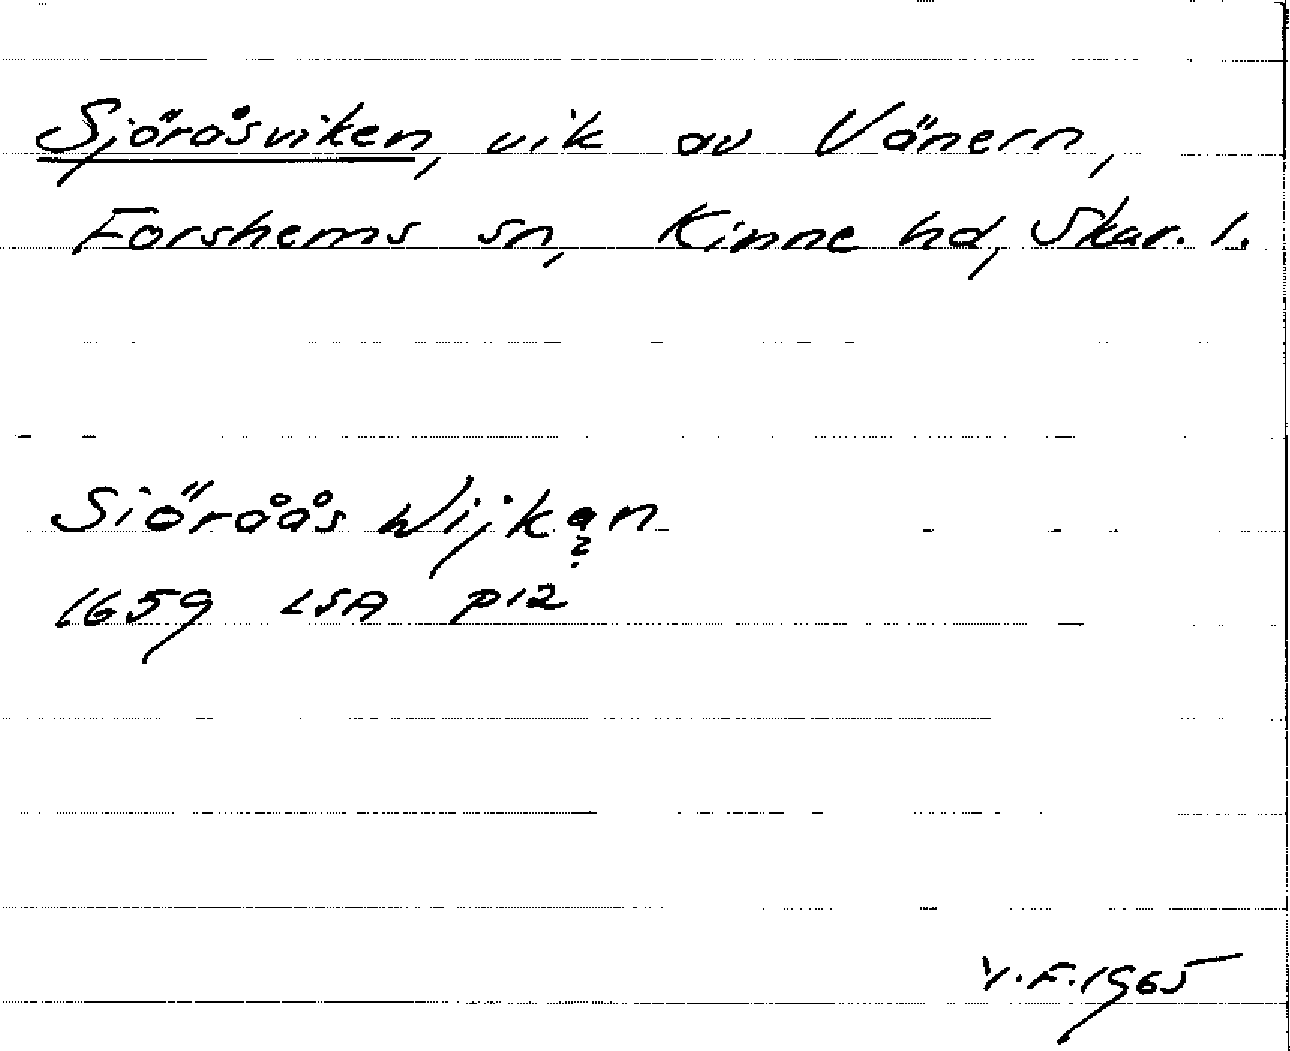 Sjöråsviken, vik av Vänern,
Forshems sn, Kinne hd, Skar. l.
Siöråås Wijkan
?
1659 LSA P12
Y.F. 1965